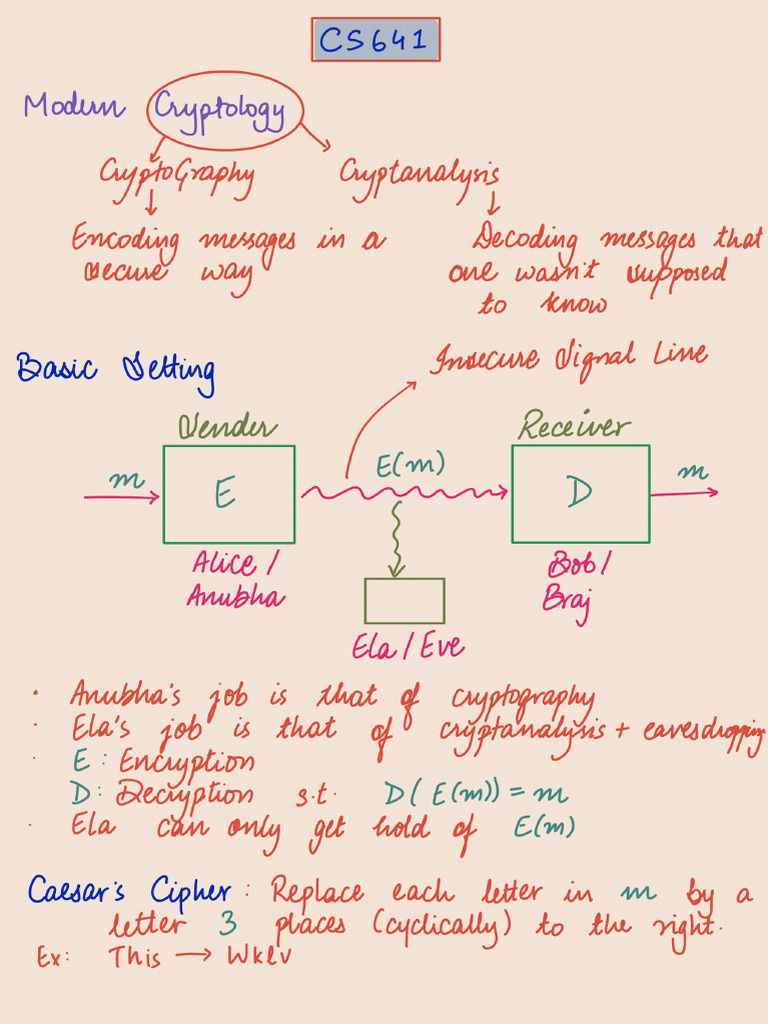 CS641
Modern Cryptology
CryptoGraphy
Cryptanalysis
Encoding messages in a
secure way
Decoding messages that
one wasn't supposed
to know
Basic Setting
Insecure Signal Line
Sender
Receiver
m
E
E(m)
D
m
Alice /
Anubha
Bob /
Braj
Ela / Eve
· Anubha's job is that of cryptography
· Ela's job is that of cryptanalysis + eavesdropping
· E : Encryption
D : Decryption s.t. D( E(m)) = m
· Ela can only get hold of E(m)
Caesar's Cipher : Replace each letter in m by a
letter 3 places (cyclically) to the right.
Ex: This → Wklv